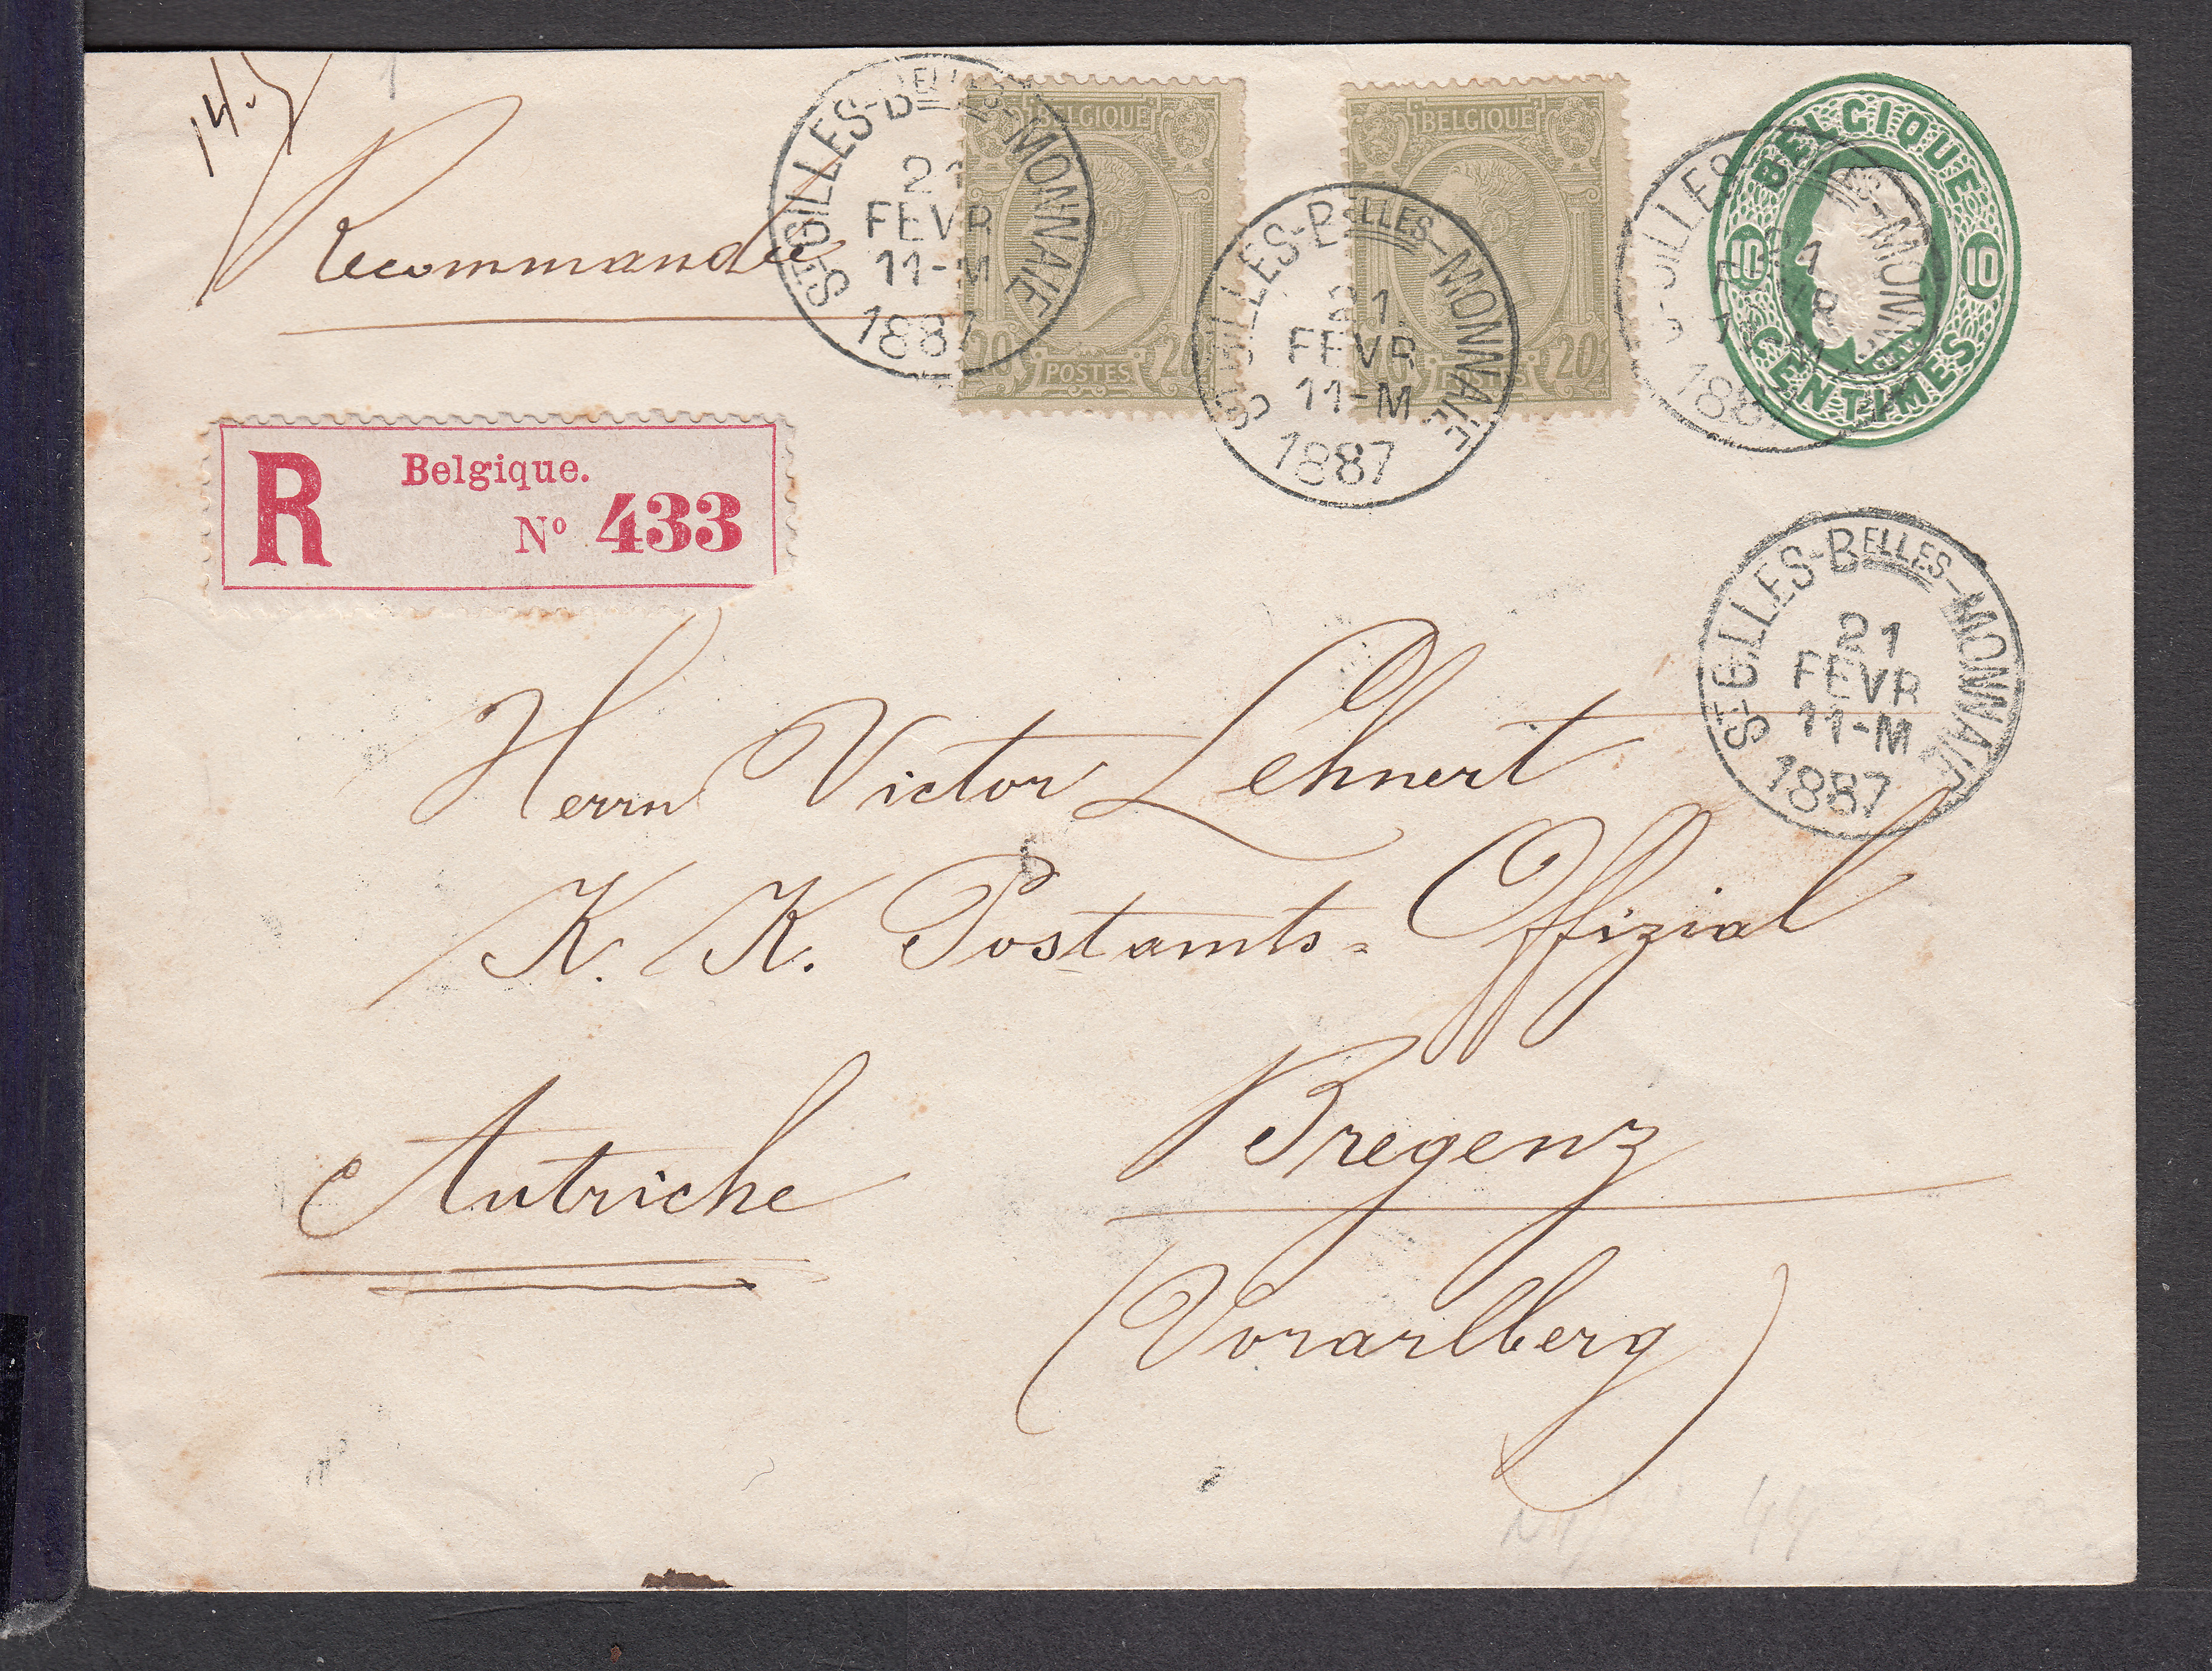 14.5
Recommandée
ST GILLES-BELLES-MONNAIE
21
FEVR
11-M
1887
BELGIQUE
20 POSTES 20
ST GILLES-BELLES-MONNAIE
21
FEVR
11-M
1887
BELGIQUE
20 POSTES 20
ST GILLES-BELLES-MONNAIE
21
FEVR
11-M
1887
BELGIQUE
10 10
CENTIMES
R Belgique.
No 433
ST GILLES-BELLES-MONNAIE
21
FEVR
11-M
1887
Herrn Victor Lehnert
K. K. Postamts=Offizial
Bregenz
Autriche
(Vorarlberg)